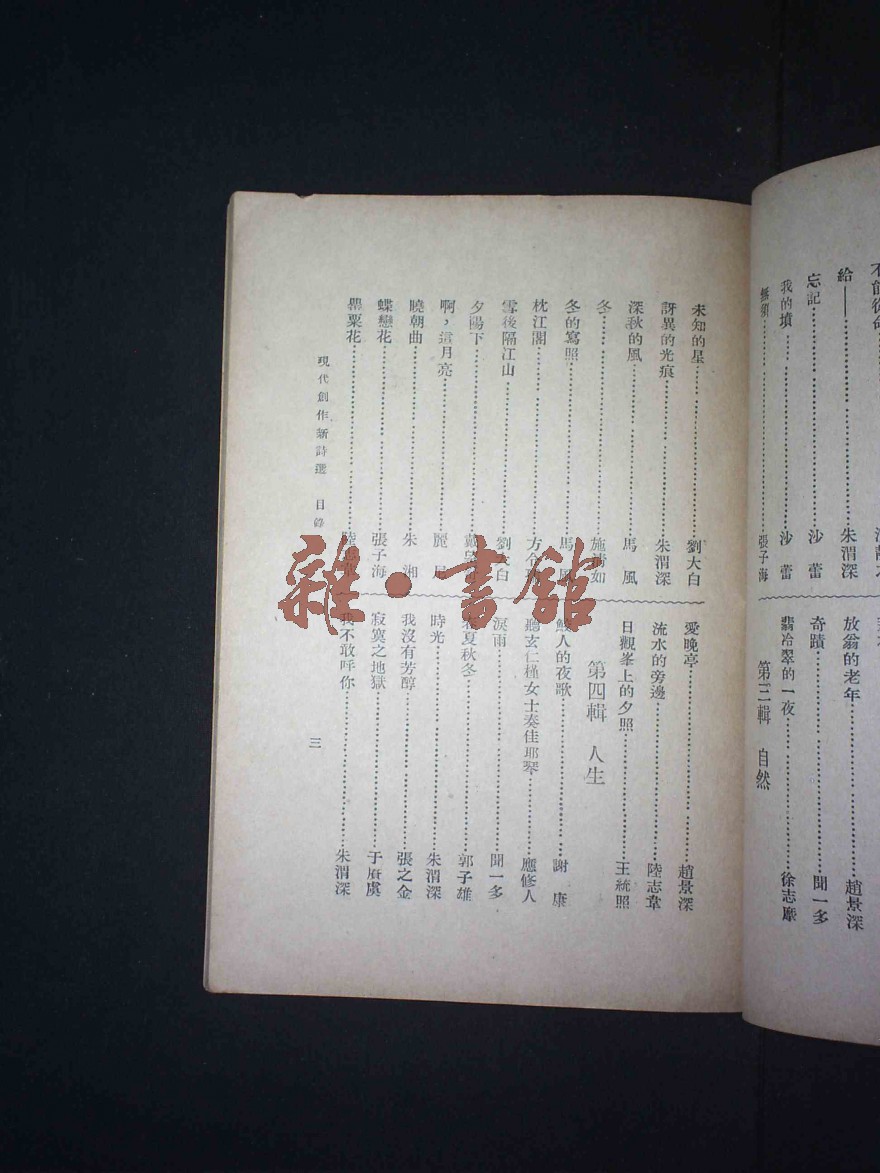 給——………朱渭深
忘記………沙蕾
我的墳………沙蕾
無須………張子海
放翁的老年………趙景深
奇蹟………聞一多
翡冷翠的一夜………徐志摩
第三輯 自然
未知的星………劉大白
訝異的光痕………朱渭深
深秋的風………馬風
冬………施
冬的寫照………馬風
枕江閣………方令
雪後隔江山………劉大白
夕陽下………戴望
啊,這月亮………麗尼
曉朝曲………朱湘
蝶戀花………張子海
罌粟花………陸
愛晚亭………趙景深
流水的旁邊………陸志韋
日觀峯上的夕照………王統照
第四輯 人生
鮫人的夜歌………謝康
聽玄仁槿女士奏佳耶琴………應修人
淚雨………聞一多
春夏秋冬………郭子雄
時光………朱渭深
我沒有芳醇………張之金
寂寞之地獄………于賡虞
我不敢呼你………朱渭深
現代創作新詩選 目錄
三
雜·書館